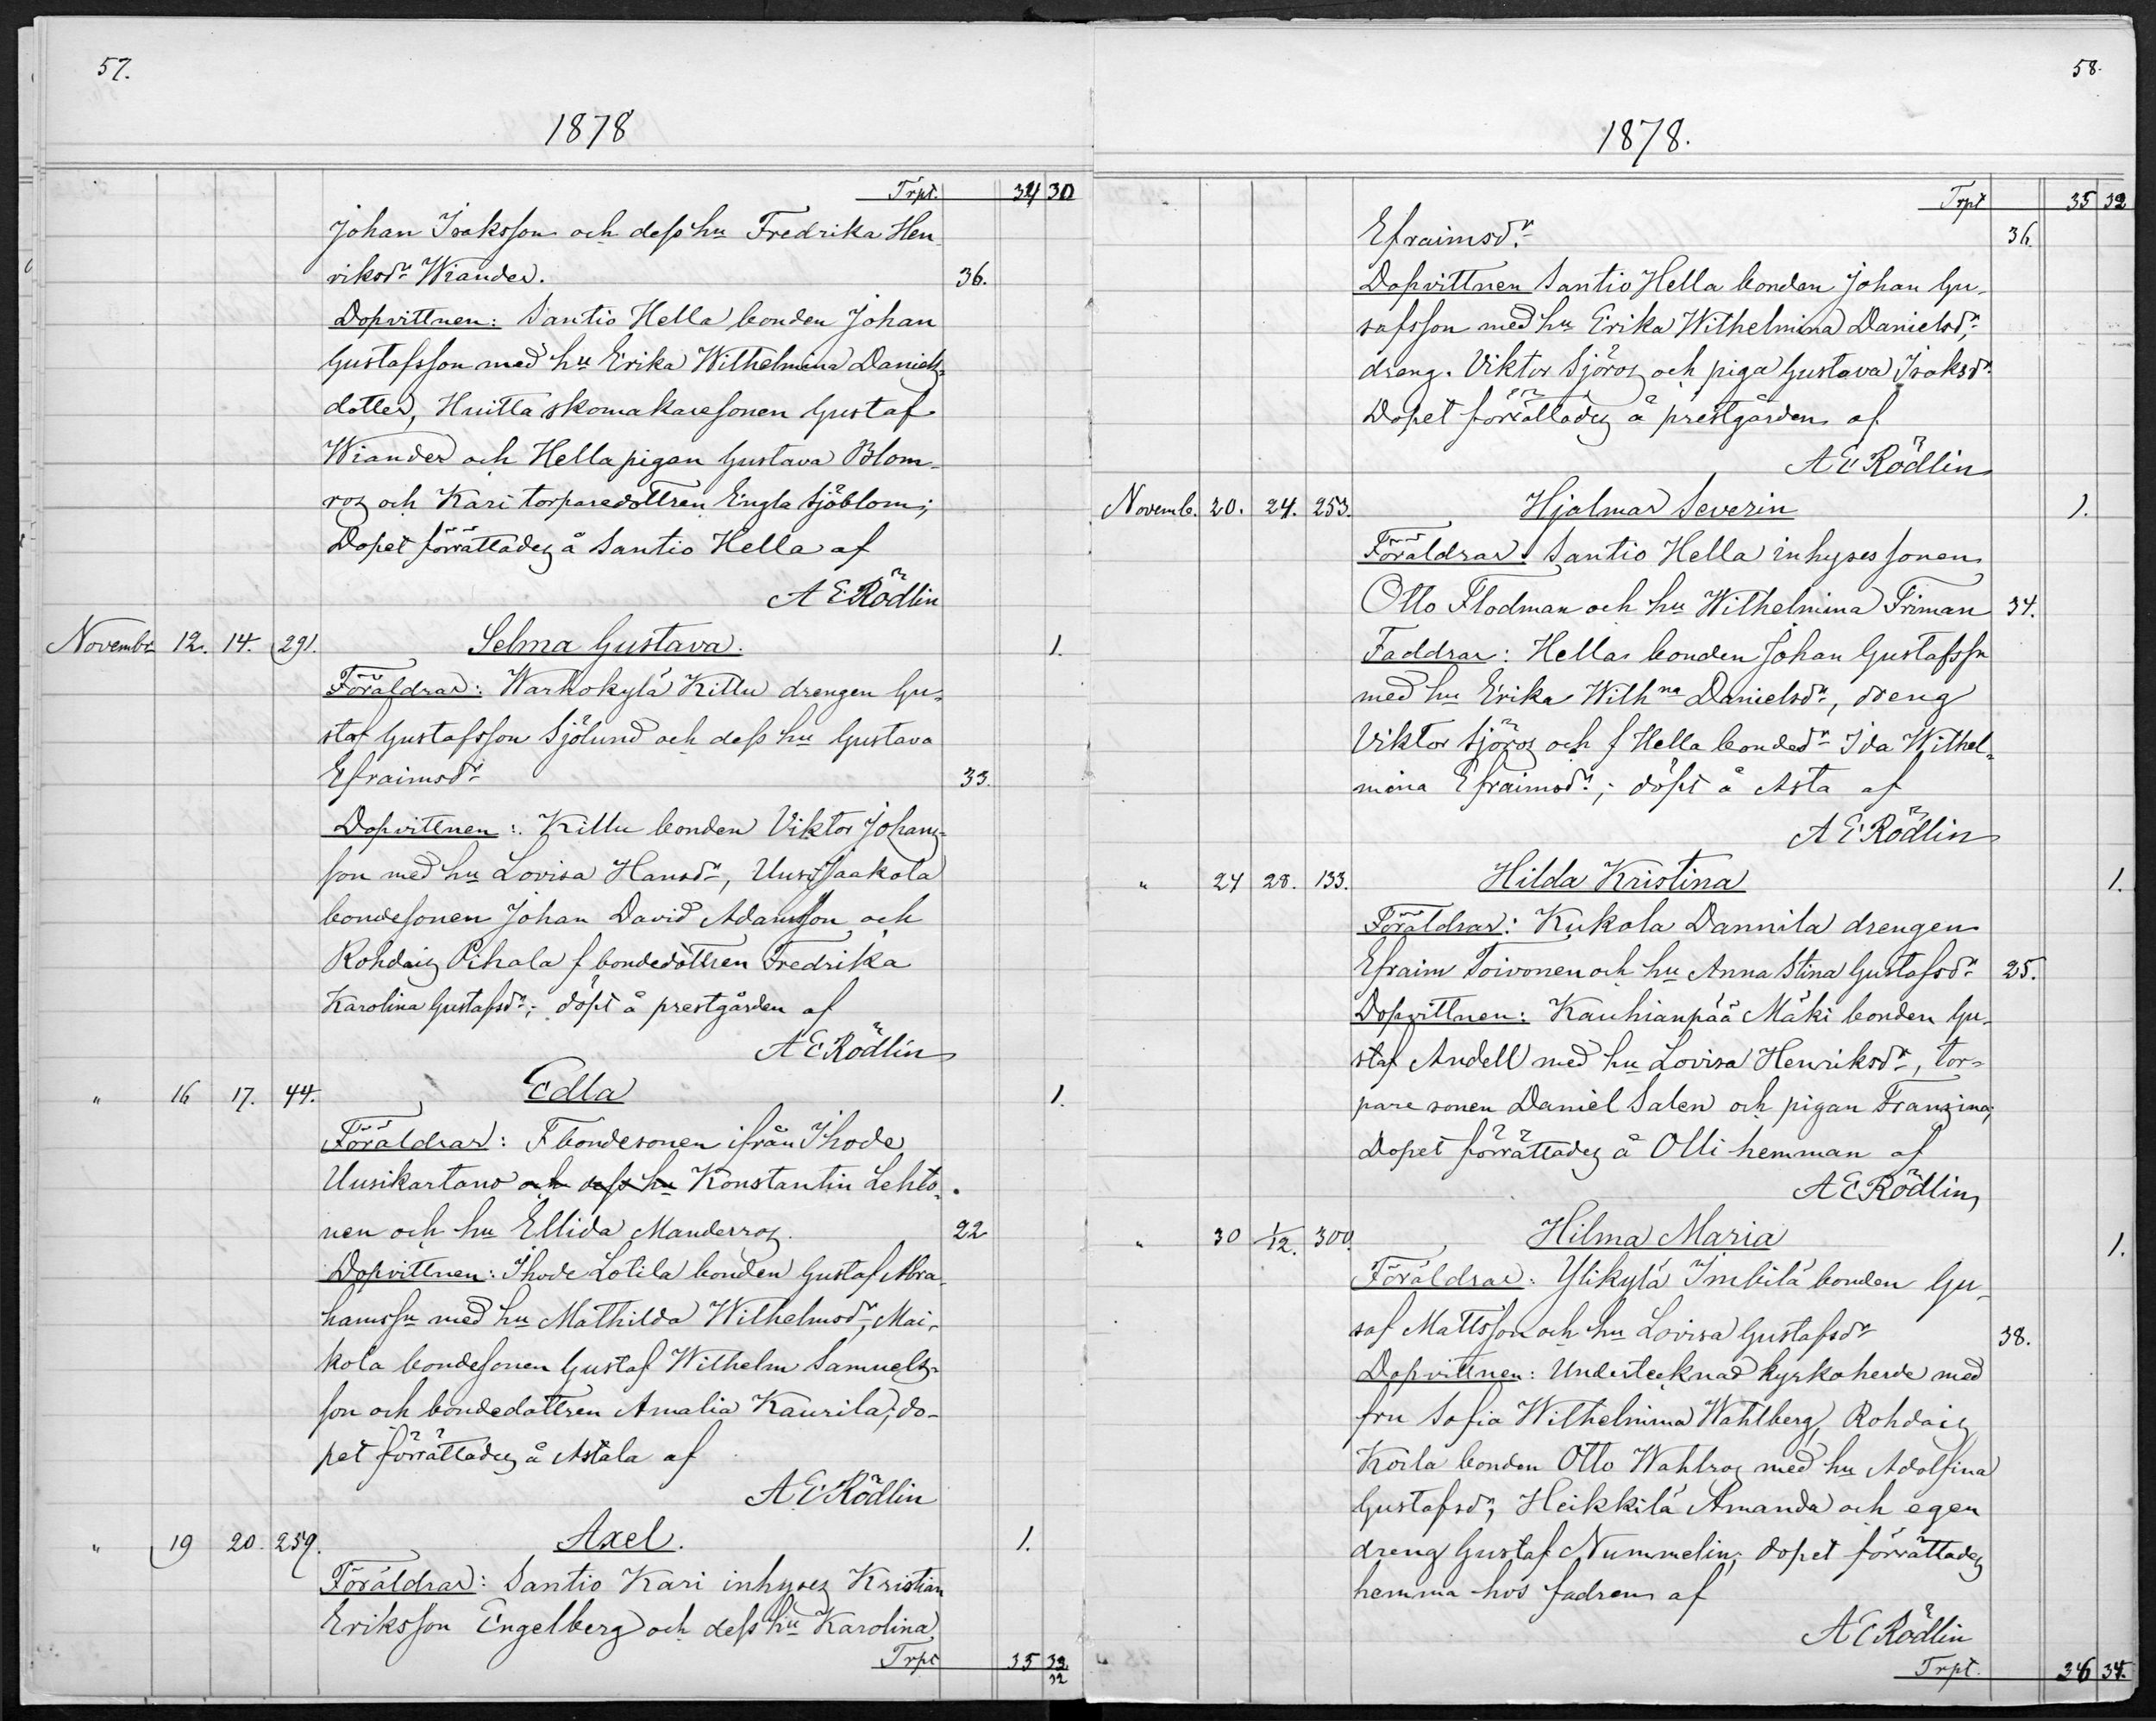 57.
1878
Trpt. 34 30
Johan Isaksson och dess hu Fredrika Hen
riksdr Wiander. 36.
Dopvittnen: Santio Hella bonden Johan
Gustafsson med hu Erika Wilhelmina Daniels
dotter, Huitta skomakaresonen Gustaf
Wiander och Hella pigan Gustava Blom-
ros och Kari torparedottren Engla Sjöblom;
Dopet förrättades å Santio Hella af
A E Rödlin
Novembr 12. 14. 291. Selma Gustava. 1.
Föräldrar: Warhokylä Killu drengen Gu-
staf Gustafsson Sjölund och dess hu Gustava
Efraimsdr 33.
Dopvittnen: Killu bonden Viktor Johans-
son med hu Lovisa Hansdr, Uusi Jaakola
bondesonen Johan David Adamsson och
Rohdais Pihala f bondedottren Fredrika
Karolina Gustafsdr; döpt å prestgården af
A E Rödlin
" 16 17. 44. Edla 1.
Föräldrar: F bondesonen ifrån Ihode
Uusikartano och dess hu Konstantin Lehto-
nen och hu Ellida Manderros. 22
Dopvittnen: Ihode Lotila bonden Gustaf Abra-
hamssn med hu Mathilda Wilhelmsdr, Mai-
kola bondesonen Gustaf Wilhelm Samuels-
son och bondedottren Amalia Kaurila; do-
pet förrättades å Astala af
A E Rödlin
" 19 20. 259. Axel. 1.
Föräldrar: Santio Kari inhyses Kristian
Eriksson Engelberg och dess hu Karolina
Trpt 35 33
32
58.
1878.
Trpt 35 32
Efraimsdr. 36.
Dopvittnen Santio Hella bonden Johan Gu-
safsson med hu Erika Wilhelmina Danielsdr,
dreng. Viktor Sjöros och piga Gustava Isaksdr.
Dopet förrättades å prestgården af
A E Rödlin
Novemb. 20. 24. 253. Hjalmar Severin 1.
Föräldrar: Santio Hella inhyses sonen
Otto Flodman och hu Wilhelmina Friman 34.
Faddrar: Hella bonden Johan Gustafssn
med hu Erika Wilhna Danielsdr, dreng
Viktor Sjöros och f Hella bondedr Ida Wilhel-
mina Efraimsdr; döpt å Asta af
A E Rödlin
" 24 28. 133. Hilda Kristina 1.
Föräldrar: Kukola Dannila drengen
Efraim Toivonen och hu Anna Stina Gustafsdr 25.
Dopvittnen: Kauhianpää Mäki bonden Gu-
staf Andell med hu Lovisa Henriksdr, tor-
pare sonen Daniel Salen och pigan Franzina;
Dopet förrättades å Olli hemman af
A E Rödlin
" 30 1/12. 300. Hilma Maria 1.
Föräldrar: Ylikylä Imbilä bonden Gu-
saf Mattsson och hu Lovisa Gustafsdr 38.
Dopvittnen: Undertecknad kyrkoherde med
fru Sofia Wilhelmina Wahlberg, Rohdais
Korla bonden Otto Wahlros med hu Adolfina
Gustafsdr, Heikkilä Amanda och egen
dreng Gustaf Nummelin; dopet förrättades
hemma hos fadren af
A E Rödlin
Trpt. 36 34.